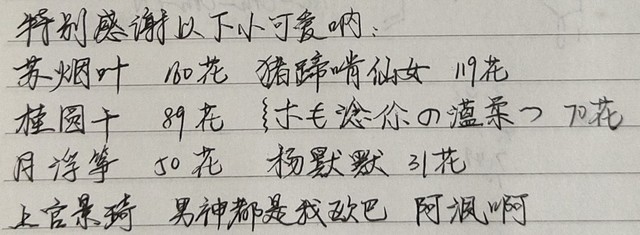 特别感谢以下小可爱呐:
苏烟叶 160花 猪蹄啃仙女 119花
桂圆干 89花 ξ木毛淰伱の蕰柔つ 70花
月浮筝 50花 杨默默 31花
上官景琦 男神都是我欧巴 阿沨啊